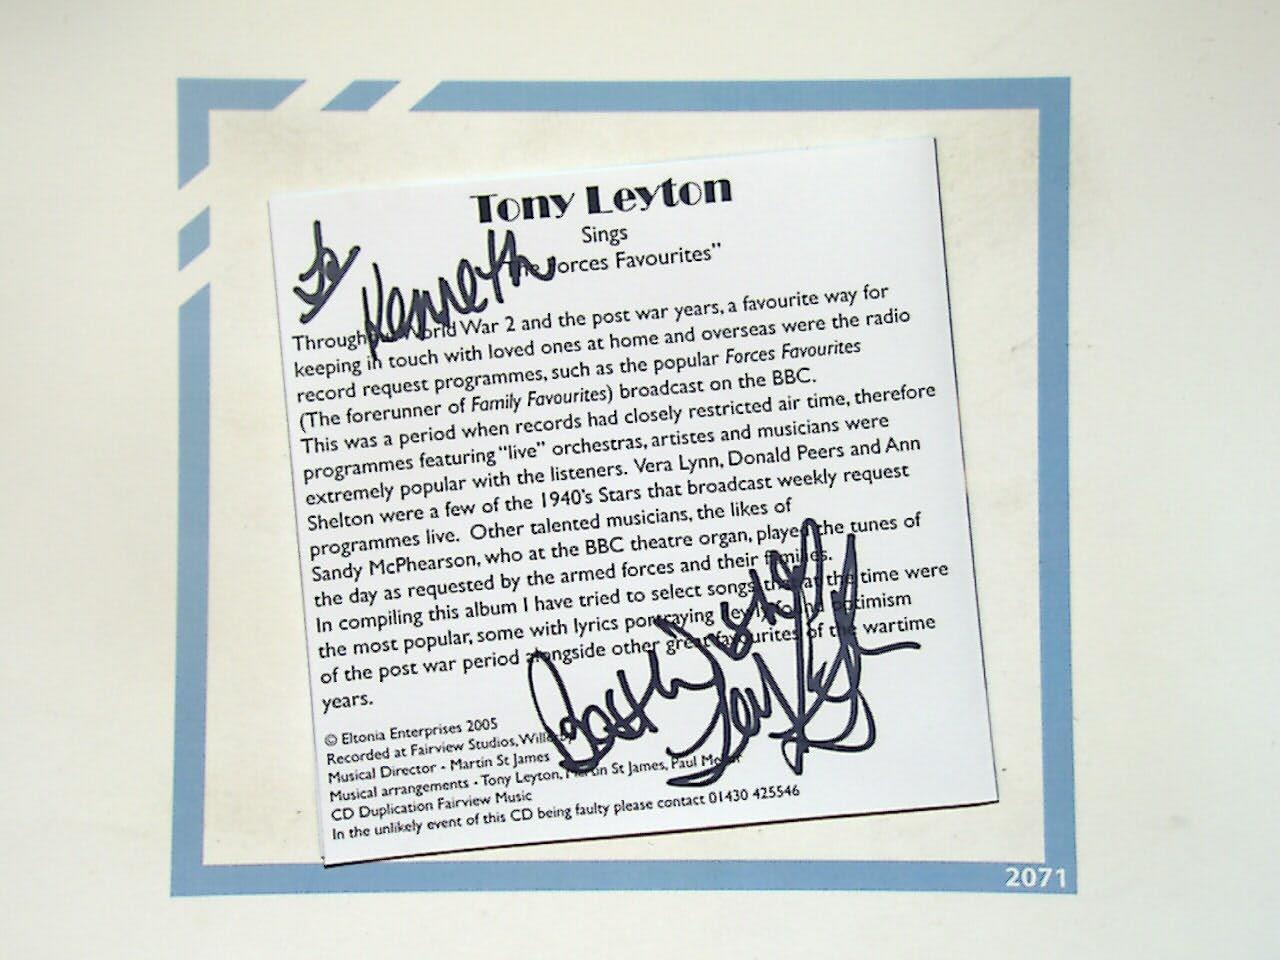 Tony Leyton
Sings
"The Forces Favourites"
To
Kenneth
Throughout World War 2 and the post war years, a favourite way for
keeping in touch with loved ones at home and overseas were the radio
record request programmes, such as the popular Forces Favourites
(The forerunner of Family Favourites) broadcast on the BBC.
This was a period when records had closely restricted air time, therefore
programmes featuring "live" orchestras, artistes and musicians were
extremely popular with the listeners. Vera Lynn, Donald Peers and Ann
Shelton were a few of the 1940's Stars that broadcast weekly request
programmes live. Other talented musicians, the likes of
Sandy McPhearson, who at the BBC theatre organ, played the tunes of
the day as requested by the armed forces and their families.
In compiling this album I have tried to select songs that at the time were
the most popular, some with lyrics portraying newly found optimism
of the post war period alongside other great favourites of the wartime
years.
Best Wishes
© Eltonia Enterprises 2005
Recorded at Fairview Studios, Willerby
Musical Director - Martin St James
Musical arrangements - Tony Leyton, Martin St James, Paul
CD Duplication Fairview Music
In the unlikely event of this CD being faulty please contact 01430 425546
2071